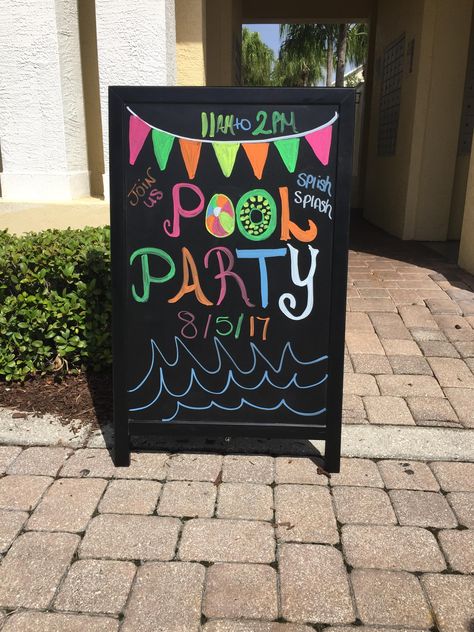 11AM to 2PM
JOIN US
SPLISH SPLASH
POOL
PARTY
8/5/17